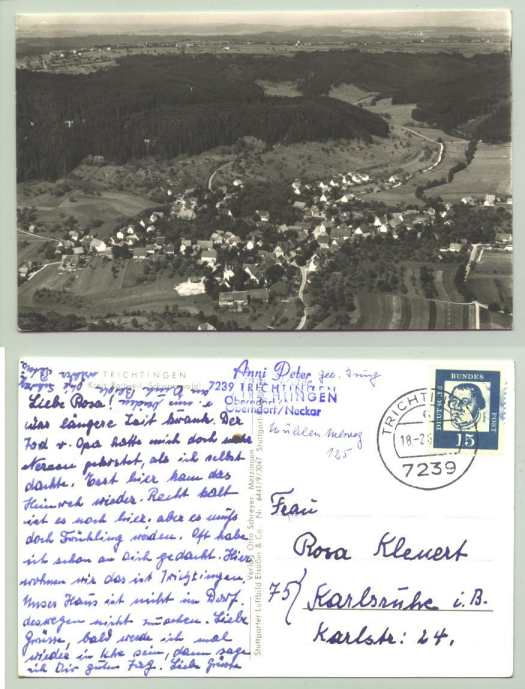 TRICHTINGEN
Anni Peter
7239 TRICHTINGEN
Oberndorf/Neckar
125
Liebe Rosa!
war längere Zeit krank. Der
Tod v. Opa hatte mich doch mehr
gekostet, als ich selbst
dachte. Erst hier kam das
Heimweh wieder. Recht kalt
ist es noch hier, aber es muß
doch Frühling werden. Oft habe
ich schon an Dich gedacht. Hier
wohnen wir das ist Trichtingen
Unser Haus ist nicht im Dorf,
deswegen nicht zu sehen. Liebe
Grüsse, bald werde ich mal
wieder in Khe sein, dann sage
ich Dir guten Tag. Liebe Grüsse
Verlag Otto Schreyer, Metzingen
Stuttgarter Luftbild Elsäßer & Co. Nr.
TRICHTINGEN
7239
DEUTSCHE BUNDESPOST
15
Frau
Rosa Klenert
75 Karlsruhe i.B.
Karlstr: 24.